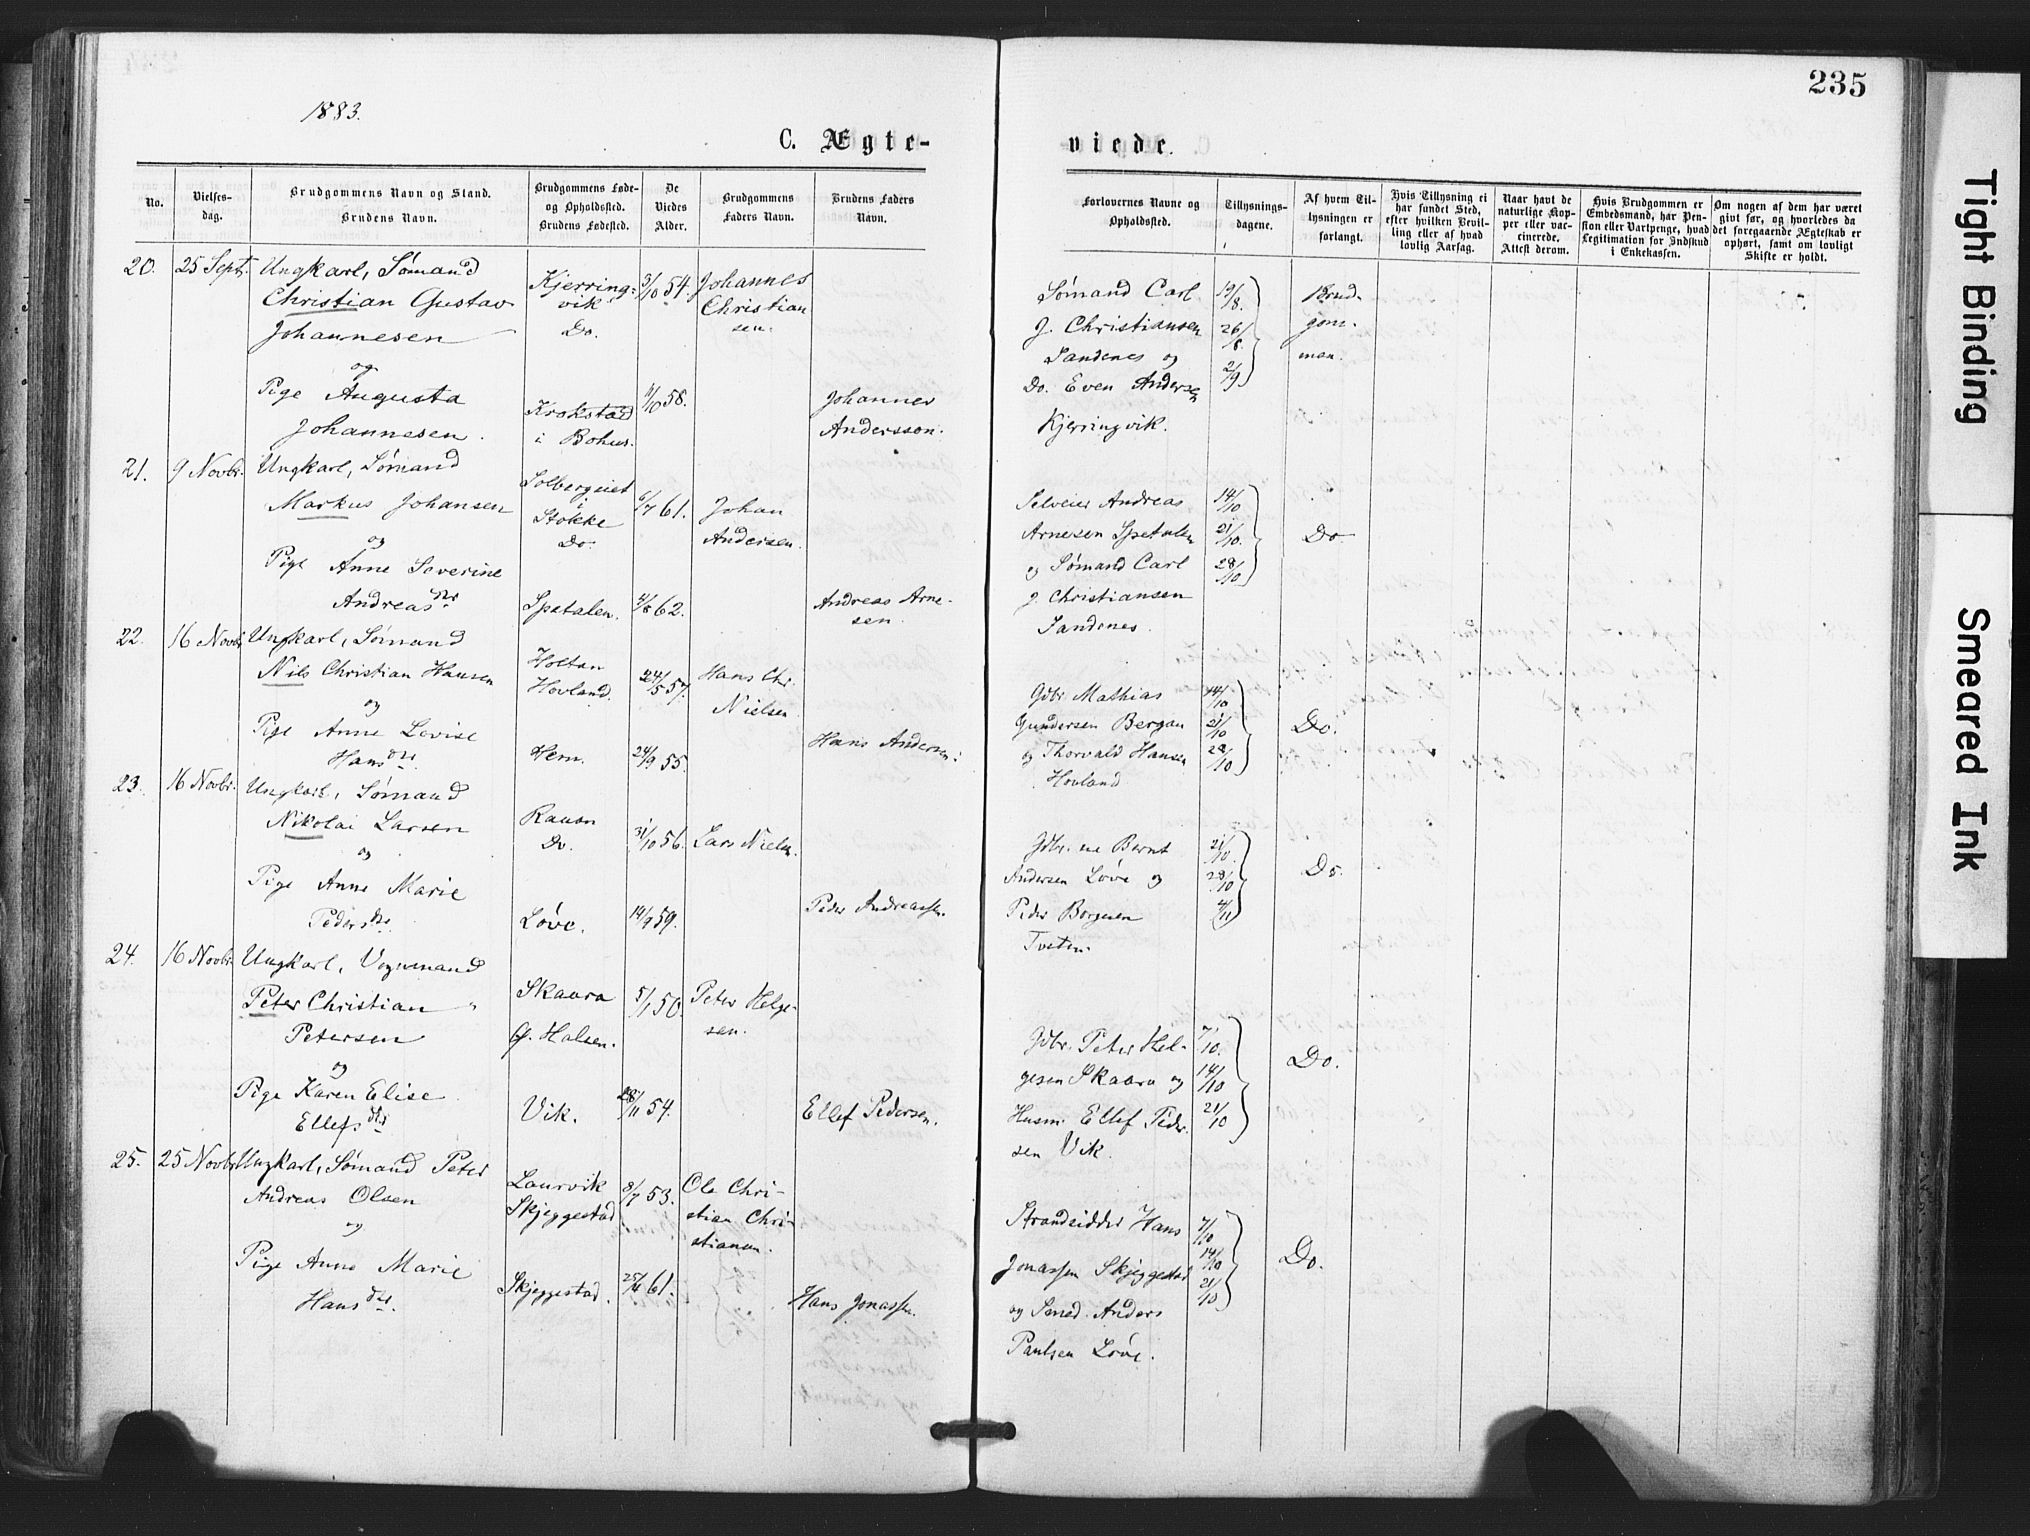 235
1883.
C. Ægte-
viede.
No.
Vielses-
dag.
Brudgommens Navn og Stand.
Brudens Navn.
Brudgommens Føde-
og Opholdssted.
Brudens Fødested.
De
Viedes
Alder.
Brudgommens
Faders Navn.
Brudens Faders
Navn.
Forlovernes Navne og
Opholdssted.
Tillysnings-
dagene.
Af hvem Til-
lysningen er
forlangt.
Hvis Tillysning ei
har fundet Sted,
efter hvilken Bevil-
ling eller af hvad
lovlig Aarsag.
Naar havt de
naturlige Kop-
per eller vac-
cinerede.
Attest derom.
Hvis Brudgommen er
Embedsmand, har Pen-
sion eller Vartpenge, hvad
Legitimation for Indskud
i Enkekassen.
Om nogen af dem har været
givt før, og hvorledes da
det foregaaende Ægteskab er
ophørt, samt om lovligt
Skifte er holdt.
20.
25 Sept.
Ungkarl, Sømand
Christian Gustav
Johannesen
og
Pige Augusta
Johannesen.
Kjerring-
vik
Do.
Krokstad
i Bohus.
3/10 54.
11/10 58.
Johannes
Christian
sen.
Johannes
Andersson.
Sømand Carl
J. Christiansen
Sandenes og
Do. Even Andersen
Kjerringvik.
19/8.
26/8.
2/9
Brud-
gom-
men.
21.
9 Novbr.
Ungkarl, Sømand
Markus Johansen
og
Pige Anne Severine
Andreasdtr
Solbergeiet
i
Stokke
Do.
Spetalen.
6/7 61.
4/8 62.
Johan
Andersen.
Andreas Arne-
sen.
Selveier Andreas
Arnesen Spetalen
og Sømand Carl
J. Christiansen
Sandenes.
14/10
21/10.
28/10
Do
22.
16 Novbr
Ungkarl, Sømand
Nils Christian Hansen
og
Pige Anne Lovise
Hansdtr.
Holtan
Hovland.
Hem.
24/5 57.
24/9 55.
Hans Chr.
Nielsen
Hans Andersen.
Gdbr Mathias
Gundersen Bergan
og Thorvald Hansen
Hovland
14/10
21/10
28/10
Do.
23.
16 Novbr.
Ungkarl, Sømand
Nikolai Larsen
og
Pige Anne Marie
Pedersdtr.
Rauan
Do.
Løve.
31/10 56.
14/9 59.
Lars Nielsen.
Peder Andreassen.
Gdbr.ne Bernt
Andersen Løve og
Peder Borgesen
Tveten.
21/10.
28/10
4/11
Do.
24.
16 Novbr.
Ungkarl, Vognmand
Peter Christian
Petersen
og
Pige Karen Elise
Ellefsdtr
Skaara
G. Halsen.
Vik.
5/1 50.
28/11 54.
Peter Helge-
sen.
Ellef Pedersen.
Gdbr. Peter Hel-
gesen Skaara og
Husm. Ellef Peder-
sen Vik.
7/10.
14/10
21/10
Do.
25.
25 Novbr
Ungkarl, Sømand Peter
Andreas Olsen
og
Pige Anne Marie
Hansdtr.
Laurvik
Skjeggestad
Skjeggestad.
8/7 53.
25/4 61.
Ole Chri-
stian Chri-
stiansen.
Hans Jonassen.
Strandsidder Hans
Jonassen Skjeggestad
og Smed Anders
Paulsen Løve.
7/10
14/10
21/10
Do.
Tight Binding
Smeared Ink